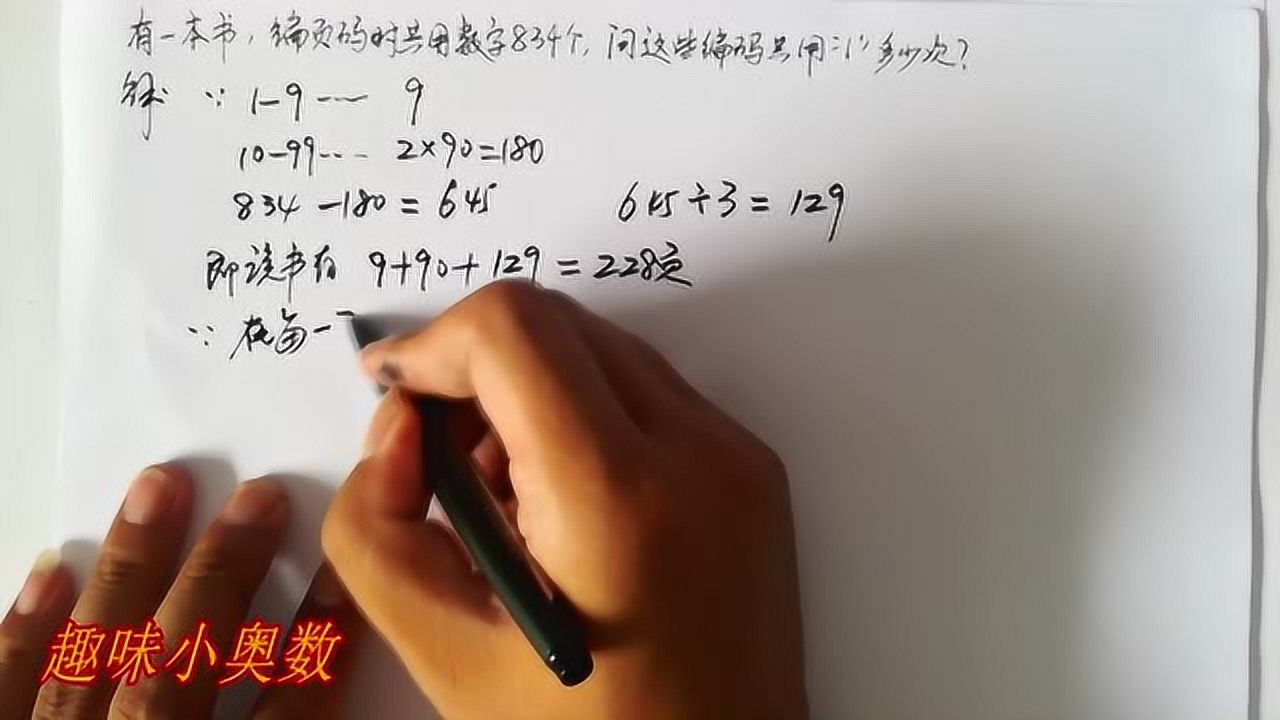 有一本书，编页码时共用数字834个，问这些编码共用"1"多少次？
解 ∵ 1-9 ---- 9
10-99--- 2×90=180
834-180=645 645÷3=129
即该书有 9+90+129=228页
∵ 在每一
趣味小奥数